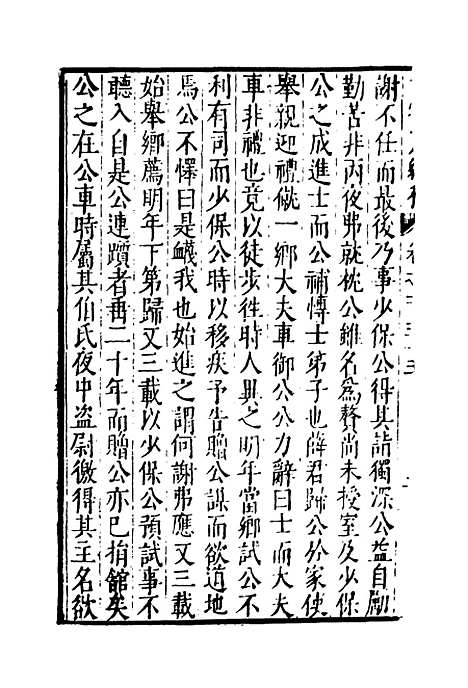 謝不任而最後乃事少保公得其詣獨深公益自勵
勤苦非丙夜弗就枕公雖名為贅尚未授室及少保
公之成進士而公補博士弟子也薛君歸公於家使
舉親迎禮僦一鄉大夫車御公公力辭曰士而大夫
車非禮也竟以徒步徃時人異之明年當鄉試公不
利有司而少保公時以移疾予告贈公謀而欲道地
焉公不懌曰是衊我也始進之謂何謝弗應又三載
始舉鄉薦明年下第歸又三載以少保公預試事不
聽入自是公連躓者再二十年而贈公亦已捐館矣
公之在公車時屬其伯氏夜中盜尉徼得其主名欲